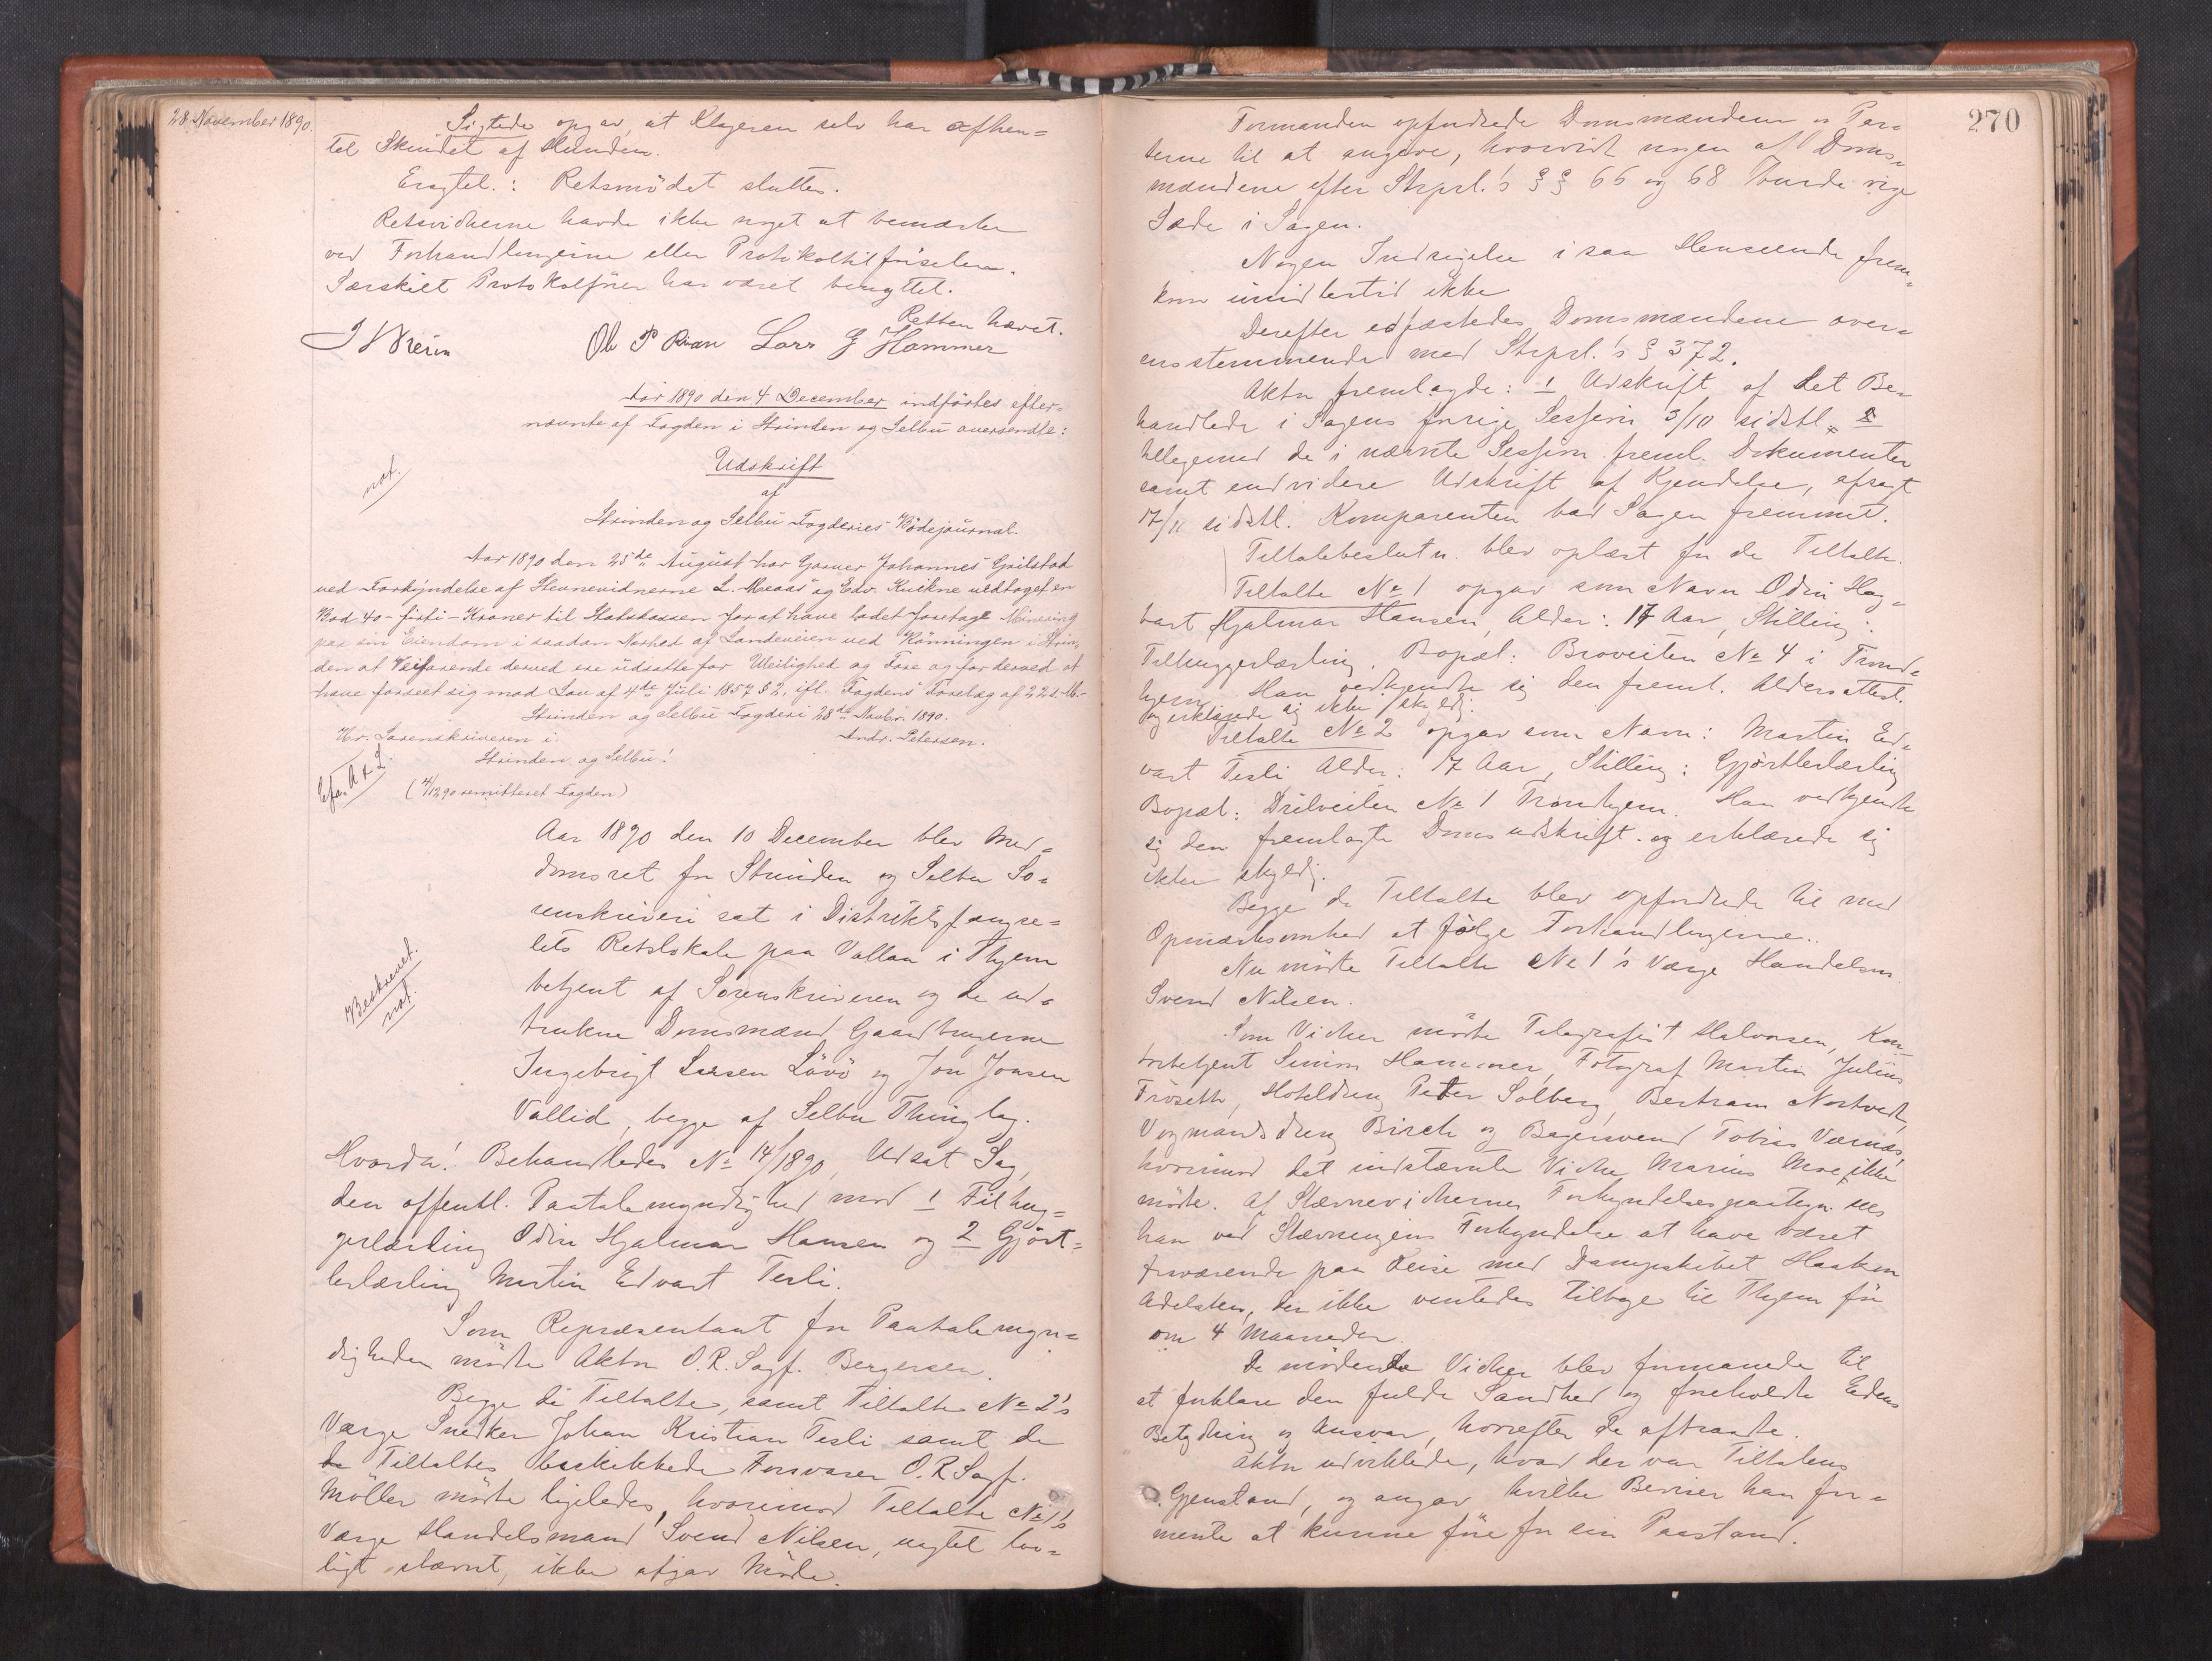 28. November 1890.
Sigtede opgav, at Klageren selv har afhen=
tet Skindet af Hunden.
Eragtet.: Retsmödet sluttes.
Retsvidnerne havde ikke noget at bemærke
ved Forhandlingerne eller Protokoltilförselen.
Særskilt Protokolförer har været benyttet.
Retten hævet.
Ole P Lars G Hammer
Aar 1890 den 4 December indförtes efter=
nævnte af Fogden i Strinden og Selbu oversendte:
not.
Udskrift
af
Strinden og Selbu Fogderies Bödejournal.
Aar 1890 den 25de August har Garver Johannes Grilstad
ved Forkyndelse af Stevnevidnerne L. Meaas og Edv. Kuikne vedtaget en
Bod 40 - firti - Kroner til Statskassen for at have ladet foretage Minering
paa sin Eiendom i saadan Nærhed af Landeveien ved Rönningen i Strin=
den at Veifarende derved ere udsatte for Uleilighed og Fare og for derved at
have forseet sig mod Lov af 4de Juli 1857 § 2, ifl. Fogdens Forelæg af 22 s. M.
Strinden og Selbu Fogderi 28de Novbr. 1890.
Andr. Petersen.
Hr. Sorenskriveren i
Strinden og Selbu!
(4/12 90 remitteret Fogden)
Aar 1890 den 10 December blev Med=
domsret for Strinden og Selbu So=
renskriveri sat i Distriktsfængse=
lets Retslokale paa Vollan i Thjem
betjent af Sorenskriveren og de ud=
trukne Domsmænd Gaardbrugerne
Beskrevet.
not.
Ingebrigt Larsen Lövö og Jon Jonsen
Vallid, begge af Selbu Thinglag.
Hvorda! Behandledes No 14/1890, Udsat Sag,
den offentl. Paatalemyndighed mod 1 Filhug=
gerlærling Odin Hjalmar Hansen og 2 Gjört=
lerlærling Martin Edvart Tesli.
Som Repræsentant for Paatalemyn=
digheden mödte Aktor O.R.Sagf. Bergersen.
Begge de Tiltalte, samt Tiltalte No 2's
Værge Snedker Johan Kristian Tesli samt de
Tiltaltes beskikkede Forsvarer O.R.Sagf.
Möller mödte ligeledes, hvorimod Tiltalte No 1's
Værge Handelsmand Svend Nilsen, uagtet lov=
ligt stævnt, ikke afgav Möde.
270
Formanden opfordrede Domsmændene og Par=
terne til at angive, hvorvidt nogen af Doms=
mændene efter Strprl.'s §§ 66 og 68 burde vige
Sæde i Sagen.
Nogen Indsigelse i saa Henseende frem=
kom imidlertid ikke
Derefter edfæstedes Domsmændene over=
ensstemmende med Strprl.'s § 372.
Aktor fremlagde: 1 Udskrift af det Be=
handlede i Sagens forrige Session 3/10 sidstl. 2
tillegemed de i nævnte Session freml. Dokumenter
samt endvidere Udskrift af Kjendelse, afsagt
17/11 sidstl. Komparenten bad Sagen fremmet.
Tiltalebeslutn. blev oplæst for de Tiltalte.
Tiltalte No 1 opgav som Navn Odin Hag=
bart Hjalmar Hansen, Alder: 17 Aar, Stilling:
Filhuggerlærling. Bopæl: Broveiten No 4 i Trond=
hjem. Han vedkjendte sig den freml. Aldersattest.
og erklærede sig ikke skyldig.
Tiltalte No 2 opgav som Navn: Martin Ed=
vart Tesli Alder: 17 Aar, Stilling: Gjörtlerlærling
Bopæl: No 1 Trondhjem. Han vedkjendte
sig den fremlagte Domsudskrift og erklærede sig
ikke skyldig.
Begge de Tiltalte blev opfordrede til med
Opmærksomhed at fölge Forhandlingerne..
Nu mödte Tiltalte No 1's Værge Handelsm.
Svend Nilsen.
Som Vidner mödte Telegrafist Halvorsen, Kon=
torbetjent Simon Hammer, Fotograf Martin Julius
Fröseth, Hoteldreng Peter Solberg, Bertram Nortvedt,
Vognmandsdreng Birch og Bagersvend Tobias Værnæs,
hvorimod det indstævnte Vidne Marius Moe ikke
mödte. Af Stævnevidnernes Forkyndelsespaategn. sees
han ved Stævningens Forkyndelse at have været
fraværende paa Reise med Dampskibet Haakon
Adelsten, der ikke ventedes tilbage til Thjem för
om 4 Maaneder.
De mödende Vidner blev formanede til
at forklare den fulde Sandhed og foreholdte Edens
Betydning og Ansvar, hvorefter de aftraadte.
Aktor udviklede, hvad der var Tiltalens
Gjenstand, og angav hvilke Beviser han for=
mente at kunne före for sin Paastand.